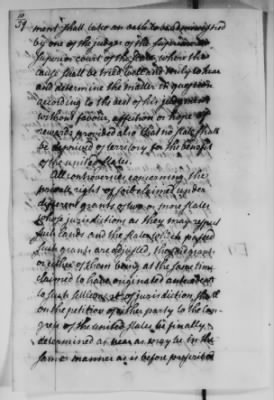 39
ment shall take an oath to be administred
by one of the judges of the supreme or
superior court of the state, where the
cause shall be tried, well and truly to hear
and determine the matter in question
according to the best of his judgment
without favour, affection or hope of
reward; provided also that no state shall
be deprived of territory for the benefit
of the united states.
All controversies concerning the
private right of soil claimed under
different grants of two or more states
whose jurisdictions as they may respect
such lands and the states which passed
such grants are adjusted, the said grants
or either of them being at the same time
claimed to have originated antecedent
to such settlement of jurisdiction shall
on the petition of either party to the Con-
gress of the united states be finally
determined as near as may be in the
same manner as is before prescribed